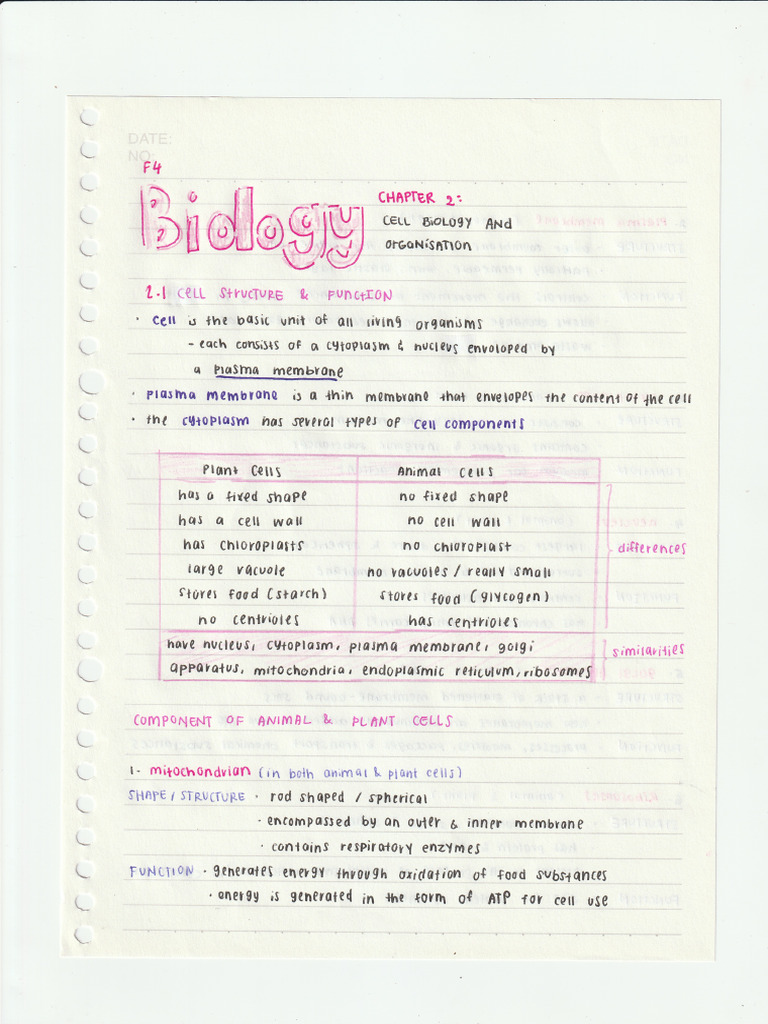 DATE:
NO:
F4
Biology
CHAPTER 2:
CELL BIOLOGY AND
ORGANISATION
2.1 CELL STRUCTURE & FUNCTION
· cell is the basic unit of all living organisms
- each consists of a cytoplasm & nucleus enveloped by
a plasma membrane
· plasma membrane is a thin membrane that envelopes the content of the cell
· the cytoplasm has several types of cell components
Plant Cells Animal Cells
has a fixed shape no fixed shape
has a cell wall no cell wall
has chloroplasts no chloroplast
large vacuole no vacuoles / really small
stores food (starch) stores food (glycogen)
no centrioles has centrioles
differences
have nucleus, cytoplasm, plasma membrane, golgi
apparatus, mitochondria, endoplasmic reticulum, ribosomes
similarities
COMPONENT OF ANIMAL & PLANT CELLS
1- mitochondrian (in both animal & plant cells)
SHAPE / STRUCTURE · rod shaped / spherical
· encompassed by an outer & inner membrane
· contains respiratory enzymes
FUNCTION · generates energy through oxidation of food substances
· energy is generated in the form of ATP for cell use